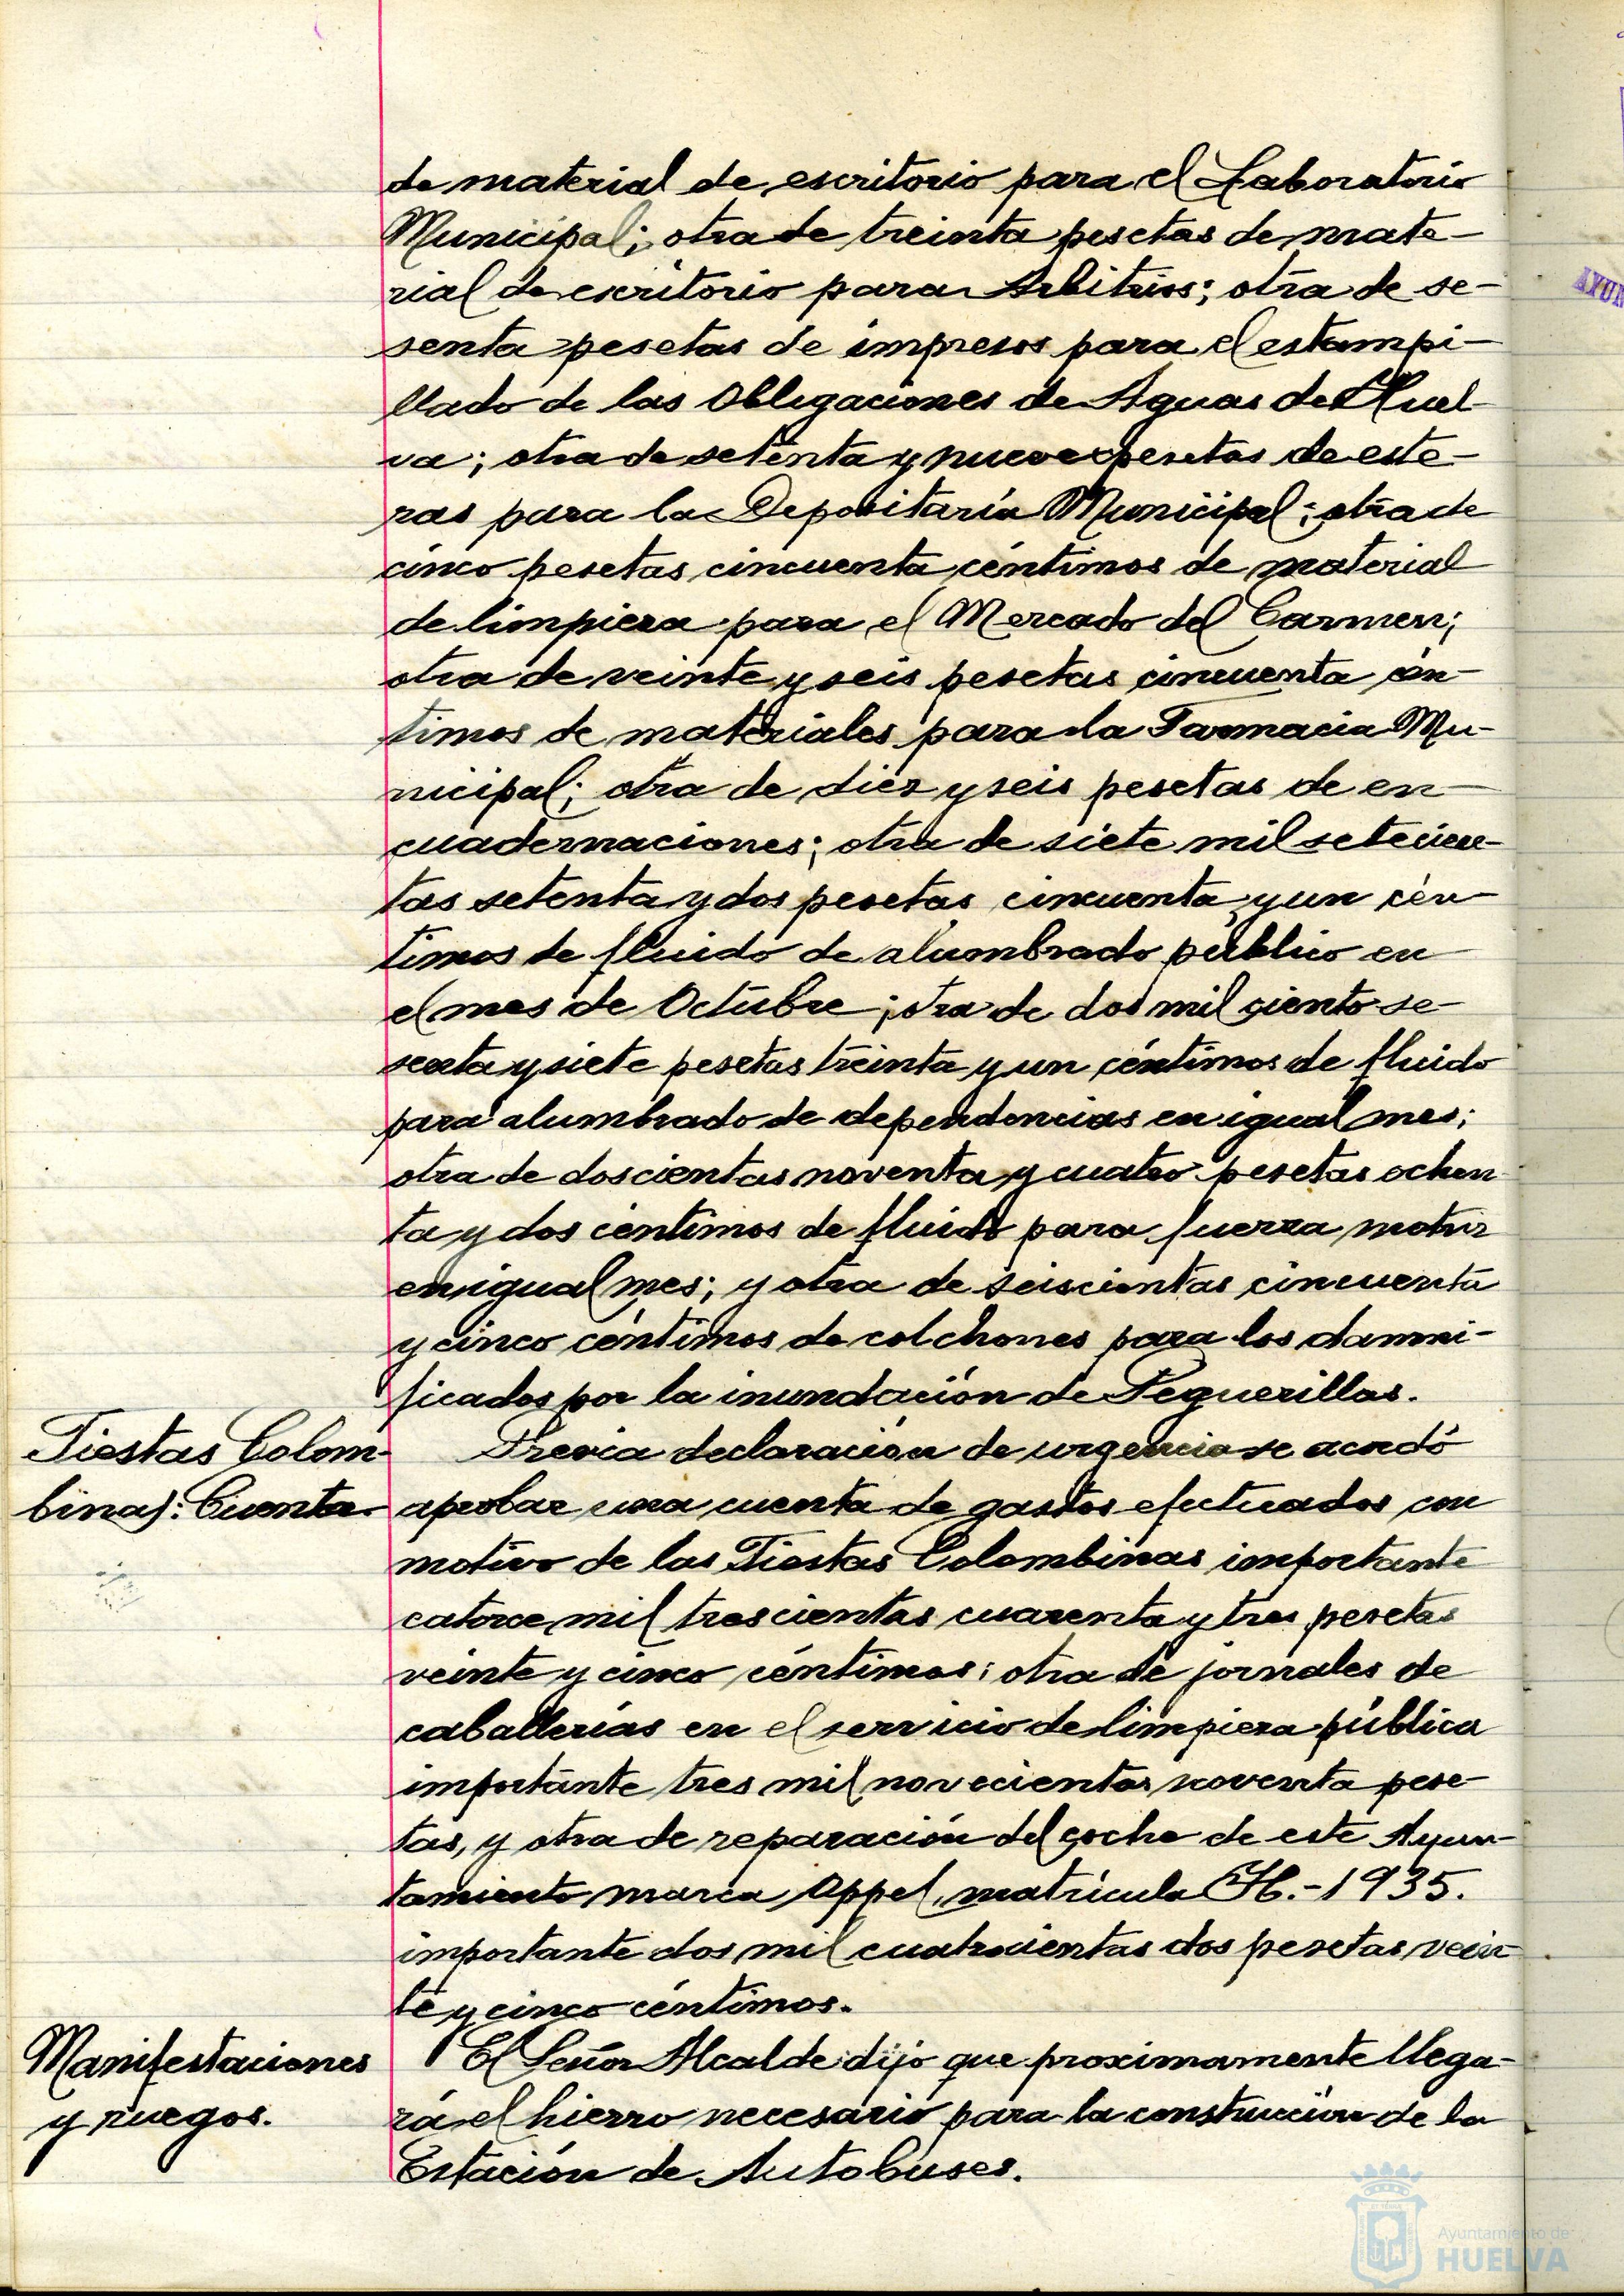 de material de escritorio para el Laboratorio
Municipal; otra de treinta pesetas de mate-
rial de escritorio para Arbitrios; otra de se-
senta pesetas de impresos para el estampi-
llado de las Obligaciones de Aguas de Huel
va; otra de setenta y nueve pesetas de este-
ras para la Depositaría Municipal; otra de
cinco pesetas cincuenta céntimos de material
de limpieza para el Mercado del Carmen;
otra de veinte y seis pesetas cincuenta cén-
timos de materiales para la Farmacia Mu-
nicipal; otra de diez y seis pesetas de en-
cuadernaciones; otra de siete mil setecien-
tas setenta y dos pesetas cincuenta y un cén-
timos de fluido de alumbrado público en
el mes de Octubre; otra de dos mil ciento se-
senta y siete pesetas treinta y un céntimos de fluido
para alumbrado de dependencias en igual mes;
otra de doscientas noventa y cuatro pesetas ochen
ta y dos céntimos de fluido para fuerza motriz
en igual mes; y otra de seiscientas cincuenta
y cinco céntimos de colchones para los damni-
ficados por la inundación de Peguerillas.
Fiestas Colom-
binas: Cuenta
Previa declaración de urgencia se acordó
aprobar una cuenta de gastos efectuados con
motivo de las Fiestas Colombinas importante
catorce mil trescientas cuarenta y tres pesetas
veinte y cinco céntimos; otra de jornales de
caballerías en el servicio de limpieza pública
importante tres mil novecientas noventa pese-
tas, y otra de reparación del coche de este Ayun-
tamiento marca Oppel, matrícula H.-1935.
importante dos mil cuatrocientas dos pesetas vein
te y cinco céntimos.
Manifestaciones
y ruegos.
El Señor Alcalde dijo que proximamente llega-
rá el hierro necesario para la construcción de la
Estación de Autobuses.
AYUN
Ayuntamiento de
HUELVA